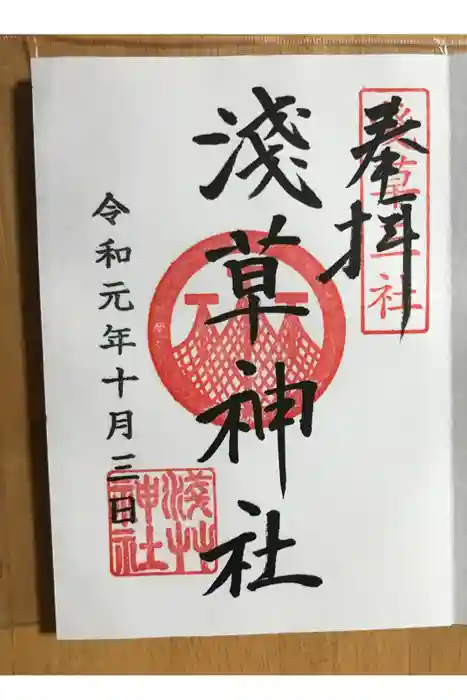 奉拝
浅草三社
淺草神社
令和元年十月三日
淺艸神社